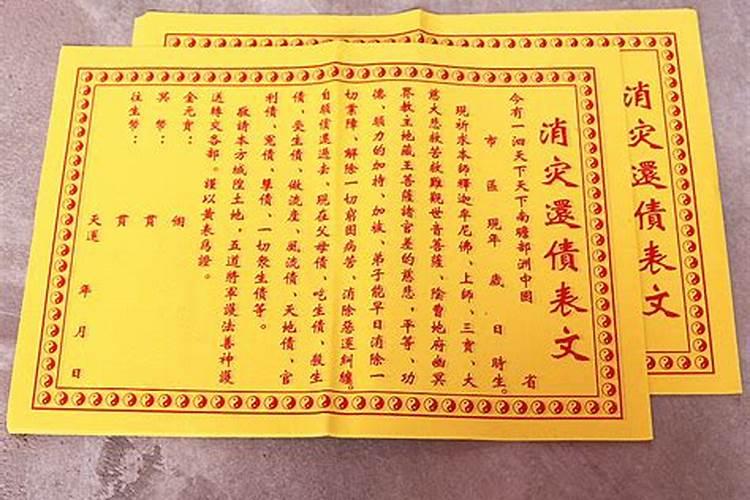 消灾還債表文
今有一泗天下天下南瞻部洲中國 省
市 區 現年 歲 日 時生。
現祈求本師釋迦牟尼佛、上師、三寶、大
慈大悲救苦救難觀世音菩薩、陰曹地府幽冥
界教主地藏王菩薩諸官差的慈悲，平等、功
德、願力的加持、加被、弟子能早日消除一
切業障、解除一切窮困病苦、消除惡運糾纏。
自願償還過去、現在父母債、吃生債、殺生
債、受生債、做流產、風流債、天地債、官
利債、冤債、孽債、一切眾生債等。
敬請本方城隍土地，五道將軍護法善神護
送轉交各部。謹以黃表爲證。
金元寶： 個
冥幣： 貫
往生幣： 貫
天運 年 月 日
消灾還債表文